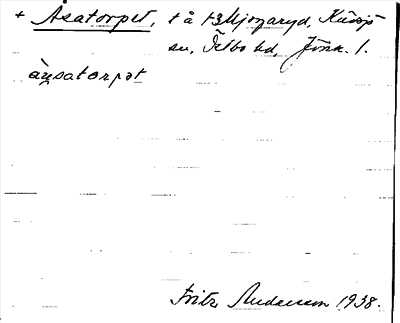 + Åsatorpet, t å 1-3 Mjogaryd, Kävsjö
sn, Östbo hd, Jönk. l.
ànsatorpət
Fritz Andersson 1938.